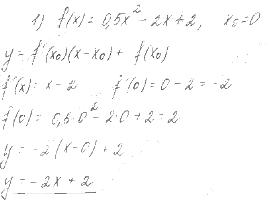 1) f(x) = 0,5x² - 2x + 2, x₀ = 0
y = f'(x₀)(x - x₀) + f(x₀)
f'(x) = x - 2 f'(0) = 0 - 2 = -2
f(0) = 0,5·0² - 2·0 + 2 = 2
y = -2(x - 0) + 2
y = -2x + 2